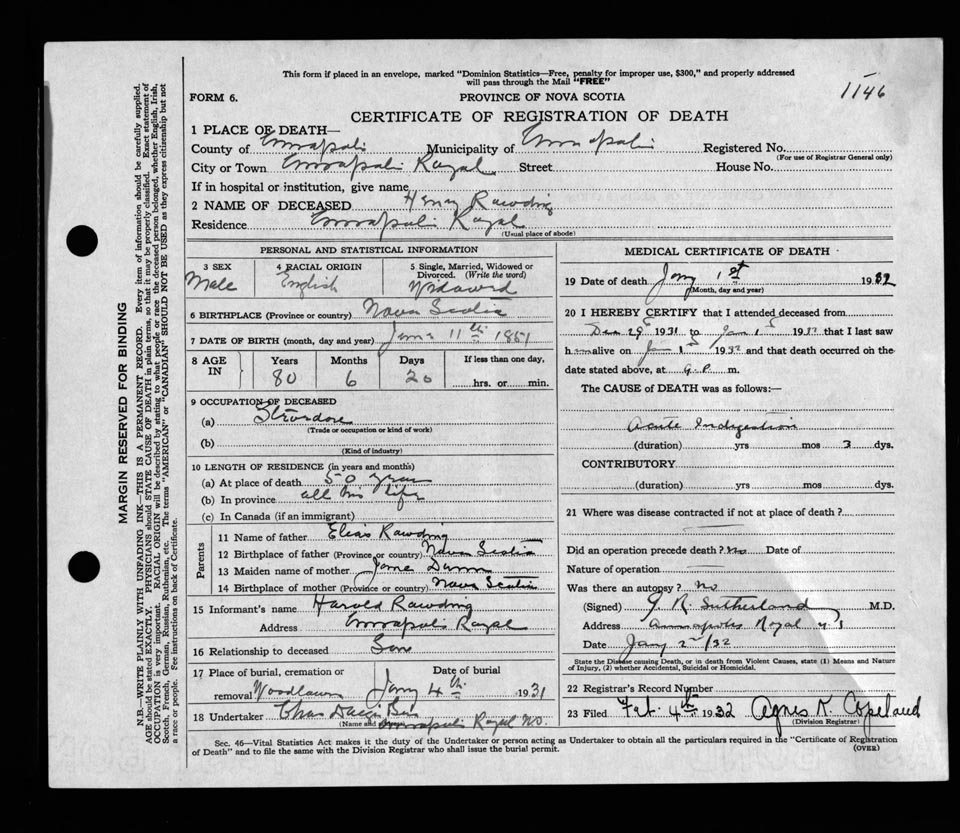 This form if placed in an envelope, marked "Dominion Statistics—Free, penalty for improper use, $300," and properly addressed
will pass through the Mail "FREE"
1146
FORM 6.
PROVINCE OF NOVA SCOTIA
CERTIFICATE OF REGISTRATION OF DEATH
1 PLACE OF DEATH—
County of Annapolis Municipality of Annapolis Registered No.
(For use of Registrar General only)
City or Town Annapolis Royal Street House No.
If in hospital or institution, give name
2 NAME OF DECEASED Henry Rawding
Residence Annapolis Royal
(Usual place of abode)
PERSONAL AND STATISTICAL INFORMATION
3 SEX
Male
4 RACIAL ORIGIN
English
5 Single, Married, Widowed or
Divorced. (Write the word)
Widowed
6 BIRTHPLACE (Province or country) Nova Scotia
7 DATE OF BIRTH (month, day and year) 11th 1851
8 AGE IN
Years Months Days If less than one day,
80 6 20 hrs. or min.
9 OCCUPATION OF DECEASED
(a) Stevedore
(Trade or occupation or kind of work)
(b)
(Kind of industry)
10 LENGTH OF RESIDENCE (in years and months)
(a) At place of death 50 years
(b) In province all his life
(c) In Canada (if an immigrant)
Parents
11 Name of father Elias Rawding
12 Birthplace of father (Province or country) Nova Scotia
13 Maiden name of mother Jane Dunn
14 Birthplace of mother (Province or country) Nova Scotia
15 Informant's name Harold Rawding
Address Annapolis Royal
16 Relationship to deceased Son
17 Place of burial, cremation or Date of burial
removal Woodlawn Jany 4th 1931
18 Undertaker Chas
(Name and Annapolis Royal NS.
MEDICAL CERTIFICATE OF DEATH
19 Date of death Jany 1st 1932
(Month, day and year)
20 I HEREBY CERTIFY that I attended deceased from
Dec 29 1931 to Jan 1 1932 that I last saw
him alive on Jan 1st 1932 and that death occurred on the
date stated above, at 9 P. m.
The CAUSE of DEATH was as follows:—
Acute Indigestion
(duration) yrs mos 3 dys.
CONTRIBUTORY
(duration) yrs mos dys.
21 Where was disease contracted if not at place of death?
Did an operation precede death? No Date of
Nature of operation
Was there an autopsy? No
(Signed) G. R. Sutherland M.D.
Address Annapolis Royal N S
Date Jany 2nd/32
State the Disease causing Death, or in death from Violent Causes, state (1) Means and Nature
of Injury, (2) whether Accidental, Suicidal or Homicidal.
22 Registrar's Record Number
23 Filed Feb. 4th 1932 Agnes K. Copeland
(Division Registrar)
Sec. 46—Vital Statistics Act makes it the duty of the Undertaker or person acting as Undertaker to obtain all the particulars required in the "Certificate of Registration
of Death" and to file the same with the Division Registrar who shall issue the burial permit.
(OVER)
MARGIN RESERVED FOR BINDING
N.B.—WRITE PLAINLY WITH UNFADING INK—THIS IS A PERMANENT RECORD. Every item of information should be carefully supplied.
AGE should be stated EXACTLY. PHYSICIANS should STATE CAUSE OF DEATH in plain terms, so that it may be properly classified. Exact statement of
OCCUPATION is very important. RACIAL ORIGIN will be described by stating to what people or race the deceased person belonged, whether English, Irish,
Scotch, French, German, Russian, Ruthenian, etc. The terms "AMERICAN" or "CANADIAN" SHOULD NOT BE USED as they express citizenship but not
a race or people. See instructions on back of Certificate.